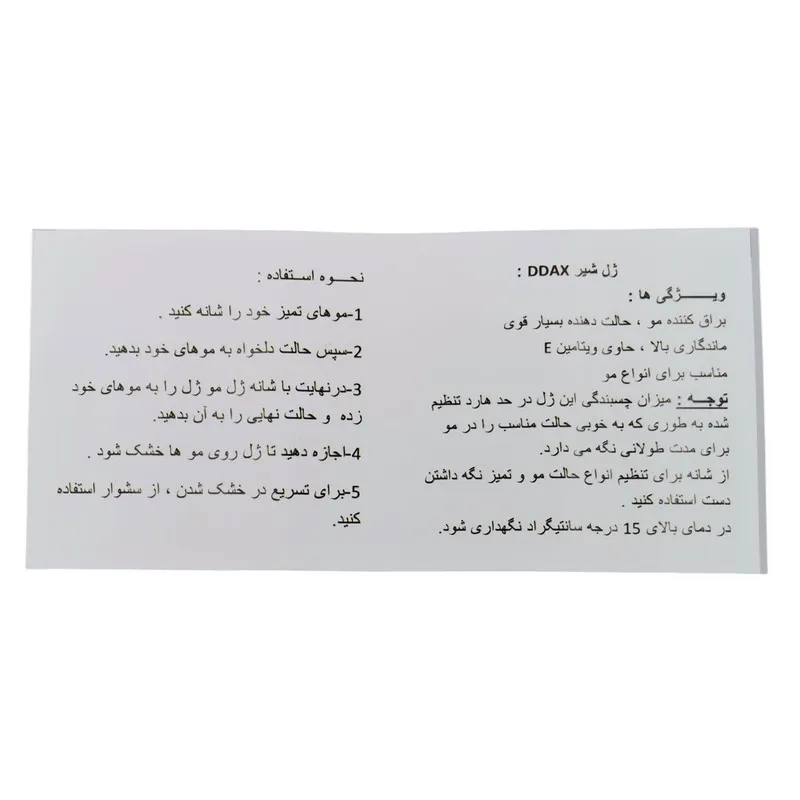 ژل شیر DDAX :
ویـــــژگی ها :
براق کننده مو ، حالت دهنده بسیار قوی
ماندگاری بالا ، حاوی ویتامین E
مناسب برای انواع مو
توجـــه : میزان چسبندگی این ژل در حد هارد تنظیم
شده به طوری که به خوبی حالت مناسب را در مو
برای مدت طولانی نگه می دارد.
از شانه برای تنظیم انواع حالت مو و تمیز نگه داشتن
دست استفاده کنید .
در دمای بالای 15 درجه سانتیگراد نگهداری شود.
نحـــوه اســتفاده :
1-موهای تمیز خود را شانه کنید .
2-سپس حالت دلخواه به موهای خود بدهید.
3-درنهایت با شانه ژل مو ژل را به موهای خود
زده و حالت نهایی را به آن بدهید.
4-اجازه دهید تا ژل روی مو ها خشک شود .
5-برای تسریع در خشک شدن ، از سشوار استفاده
کنید.